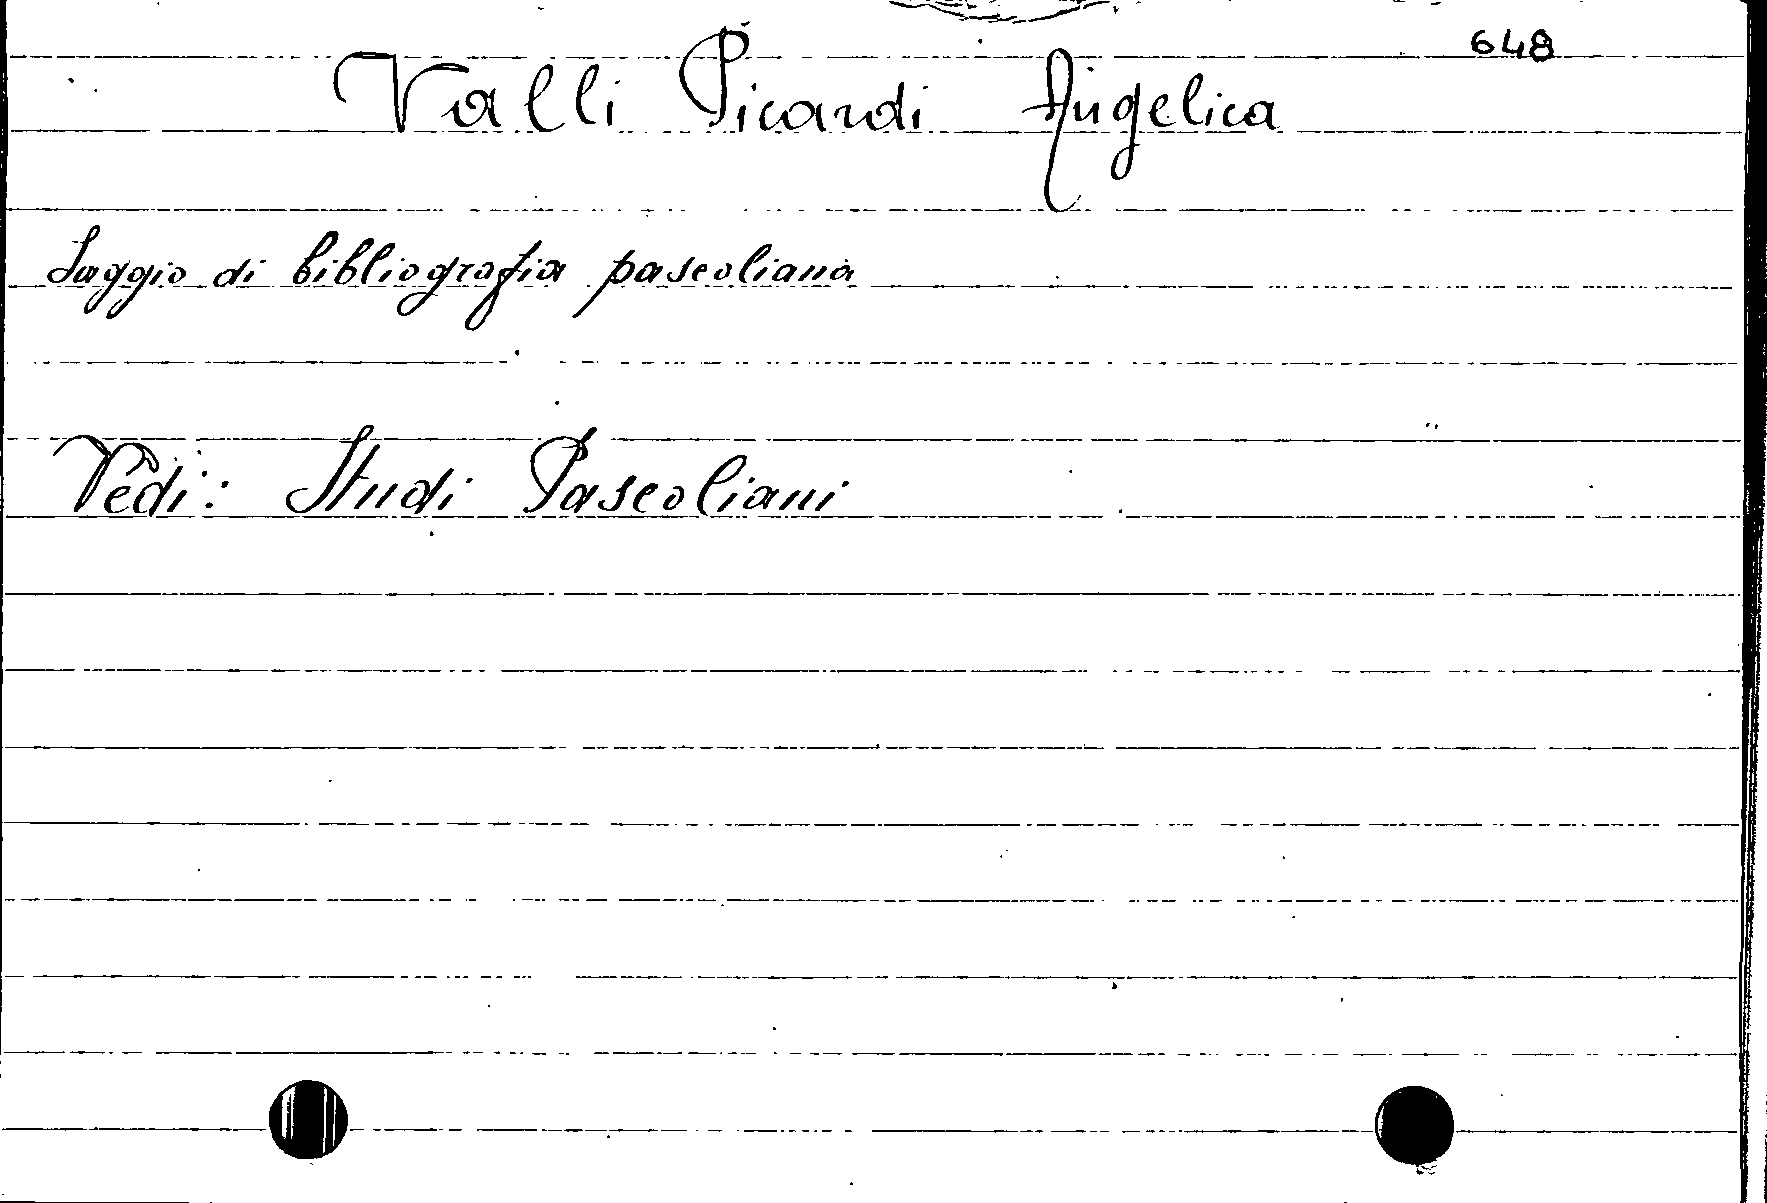 648
Valli Picardi Angelica
Saggio di bibliografia pascoliana
Vedi: Studi Pascoliani